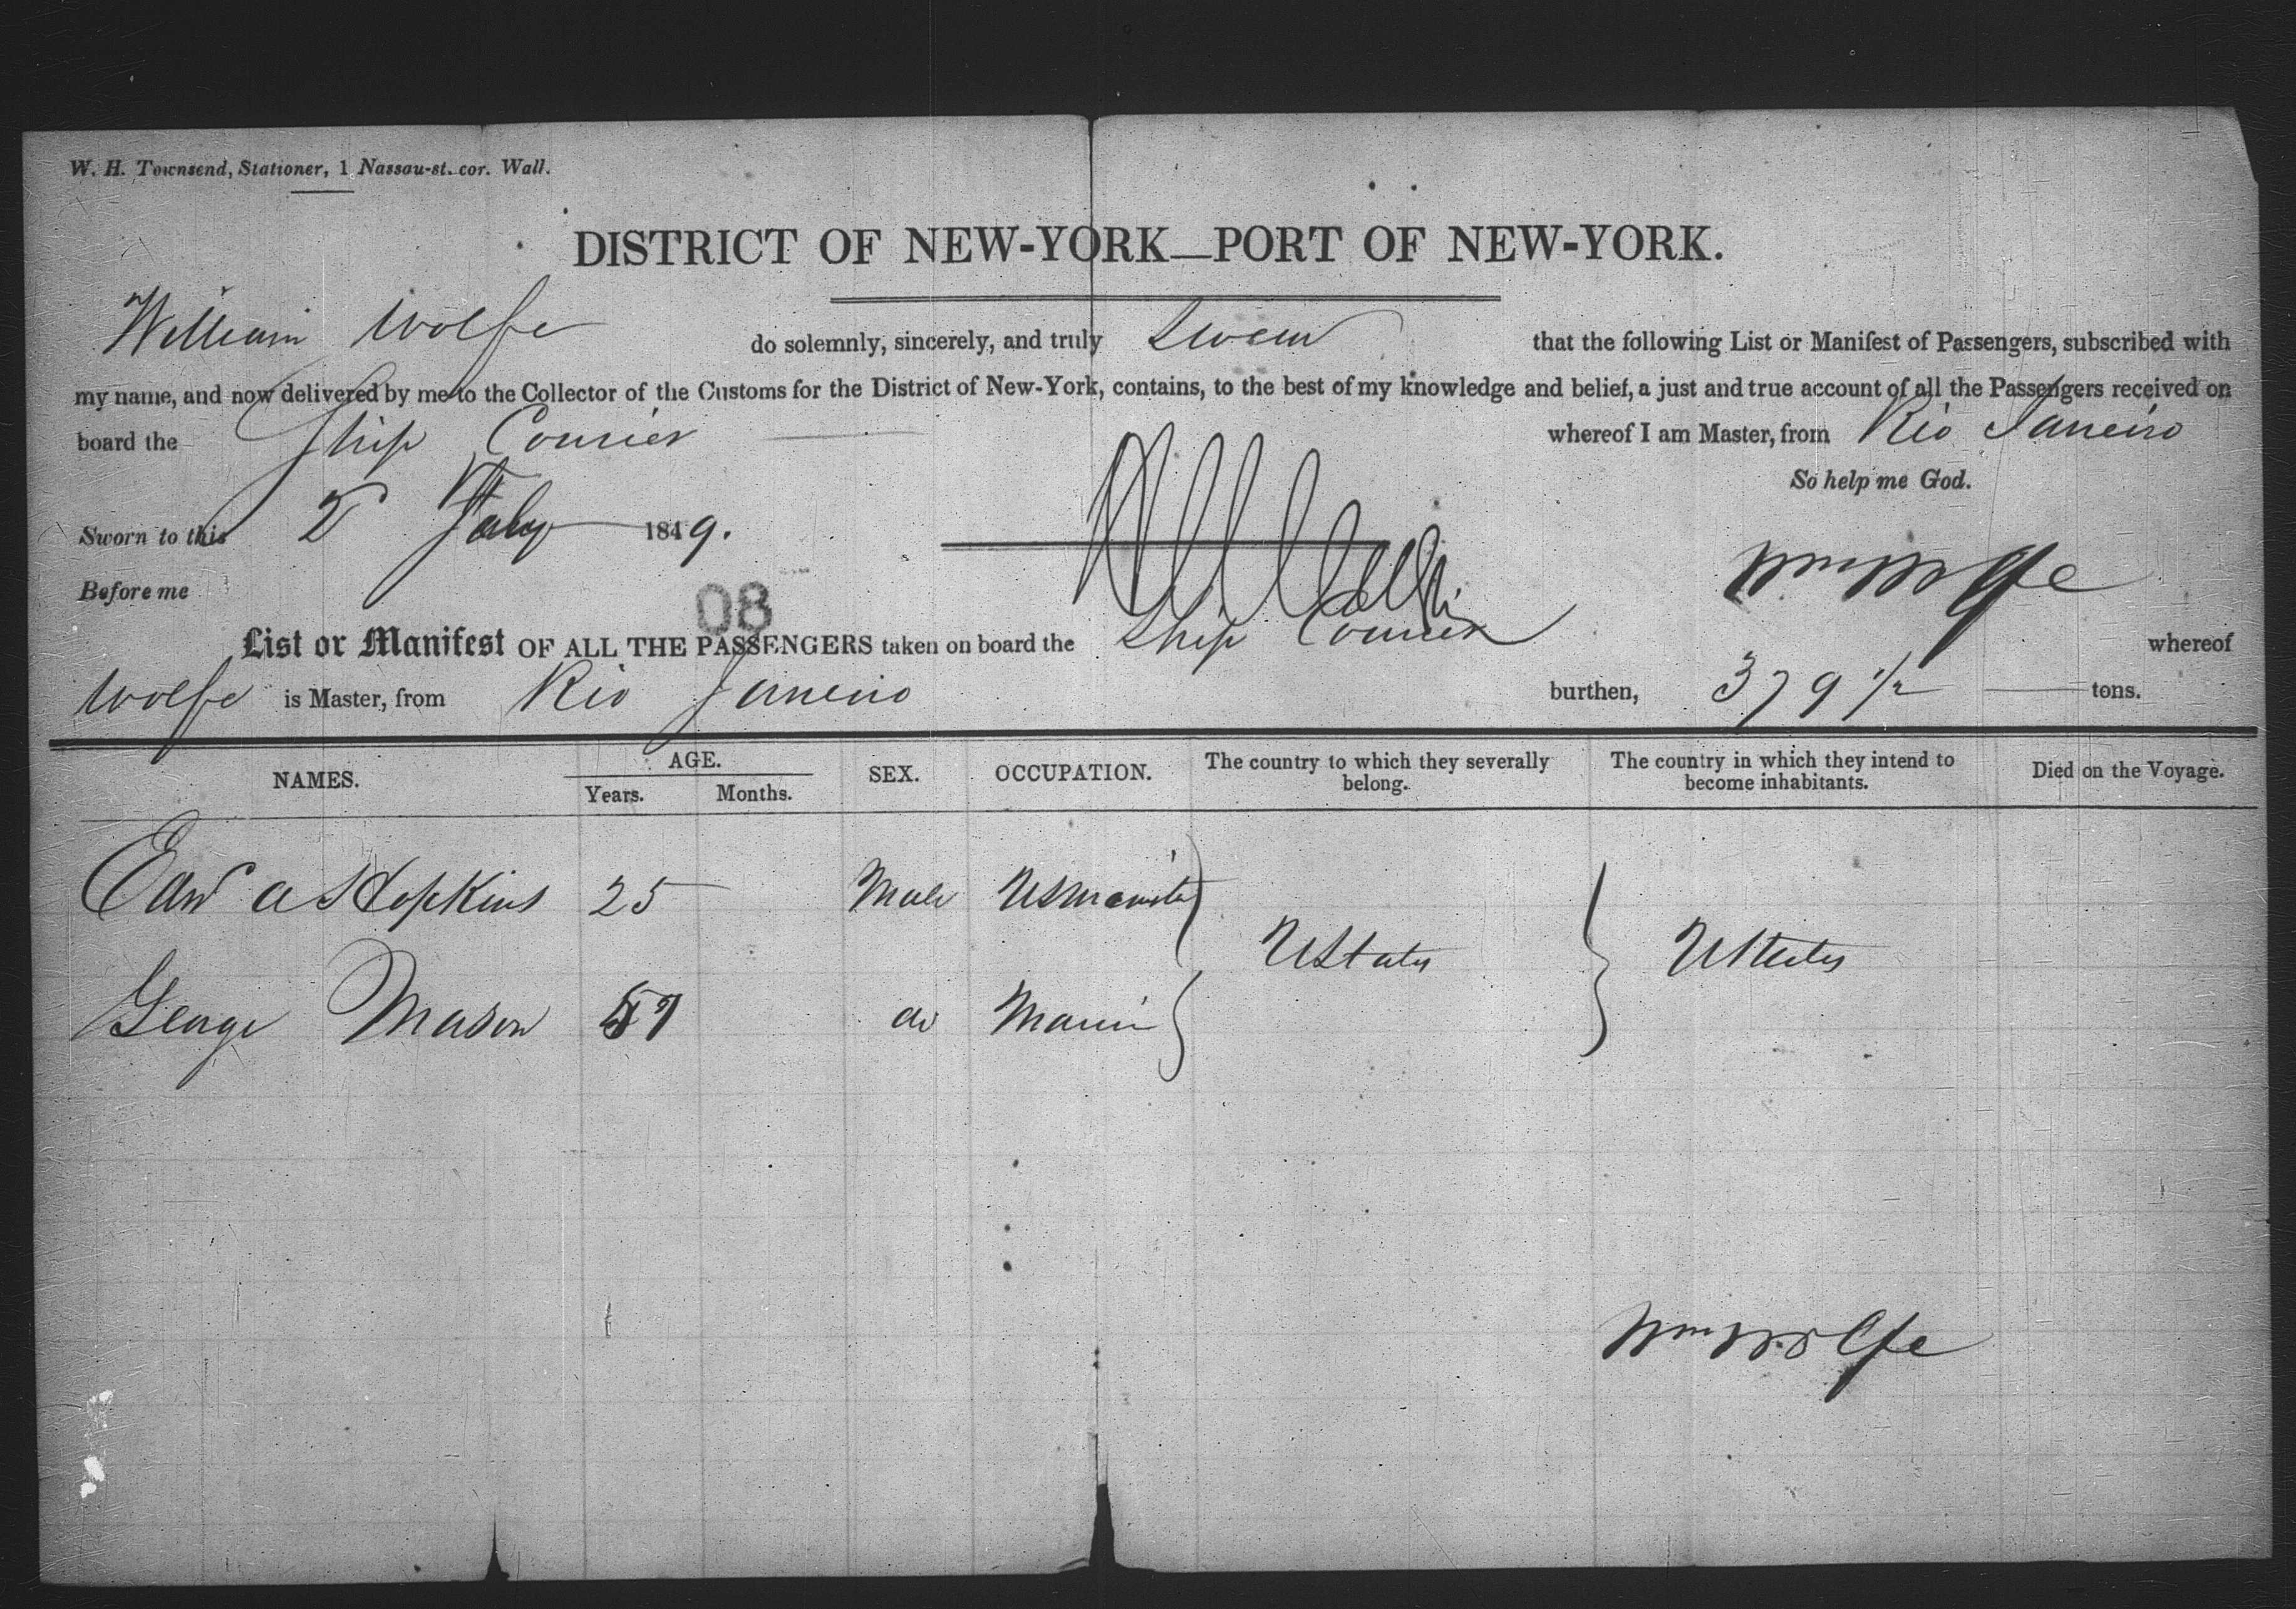 W. H. Townsend, Stationer, 1 Nassau-st. cor. Wall.
DISTRICT OF NEW-YORK—PORT OF NEW-YORK.
William Wolfe do solemnly, sincerely, and truly swear that the following List or Manifest of Passengers, subscribed with
my name, and now delivered by me to the Collector of the Customs for the District of New-York, contains, to the best of my knowledge and belief, a just and true account of all the Passengers received on
board the Ship Courier whereof I am Master, from Rio Janeiro
So help me God.
Sworn to this 2 July 1849.
Wm Wolfe
Before me
08
List or Manifest OF ALL THE PASSENGERS taken on board the Ship Courier whereof
Wolfe is Master, from Rio Janeiro burthen, 379 1/2 tons.
NAMES. AGE. Years. Months. SEX. OCCUPATION. The country to which they severally belong. The country in which they intend to become inhabitants. Died on the Voyage.
Edw A Hopkins 25 Male
UStates UStates
George Mason 57 do
Wm Wolfe